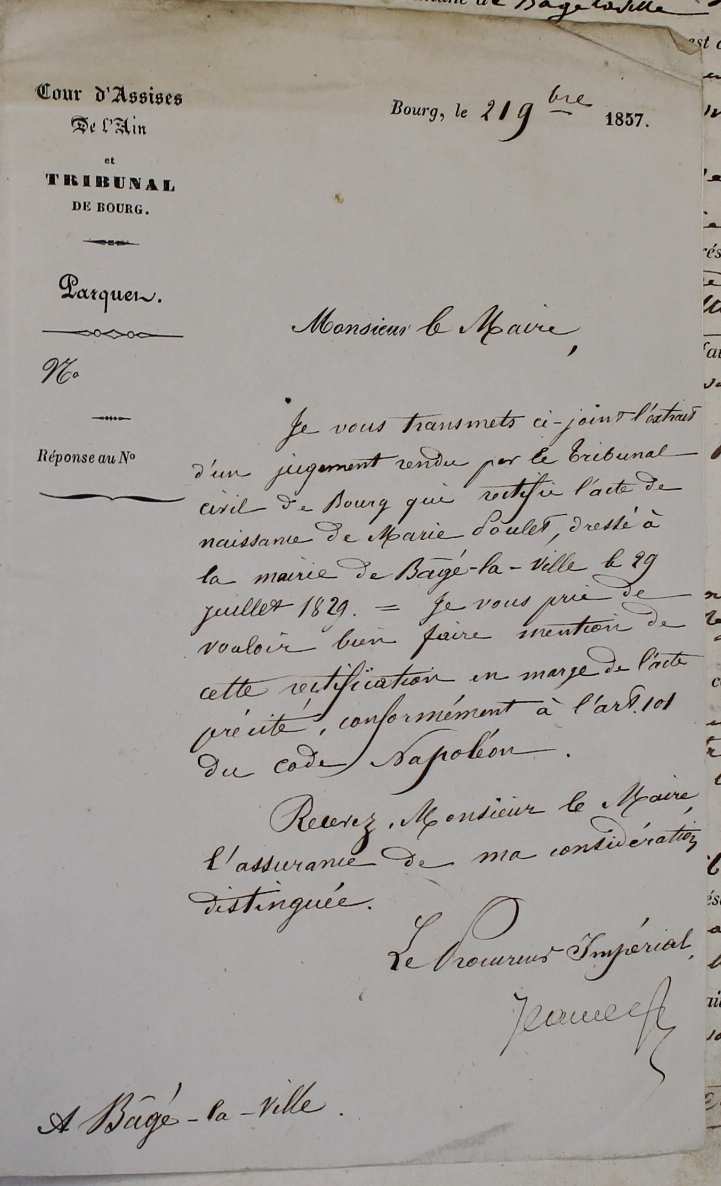 Cour d'Assises
De l'Ain
et
TRIBUNAL
DE BOURG.
Parquet.
No
Réponse au No
Bourg, le 21 9bre 1857.
Monsieur le Maire,
Je vous transmets ci-joint l'extrait
d'un jugement rendu par le Tribunal
civil de Bourg qui rectifie l'acte de
naissance de Marie Poulet, dressé à
la mairie de Bâgé-la-Ville le 29
juillet 1829. = Je vous prie de
vouloir bien faire mention de
cette rectification en marge de l'acte
précité, conformément à l'art. 101
du code Napoléon.
Recevez, Monsieur le Maire,
l'assurance de ma considération
distinguée.
Le Procureur Impérial,
A Bâgé-la-Ville.